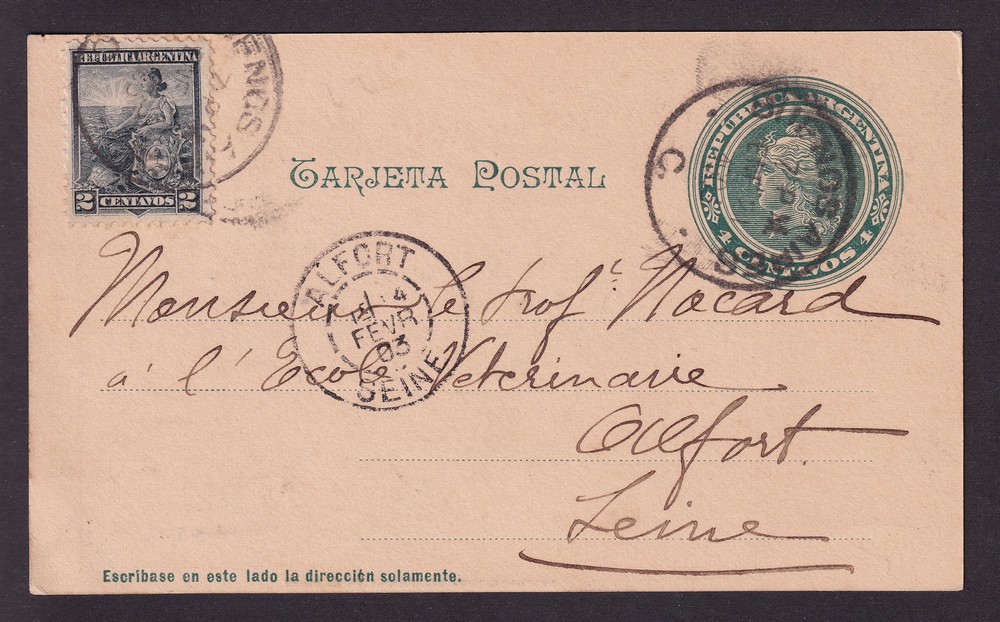 REPUBLICA ARGENTINA
2 CENTAVOS 2
BUENOS AIRES
REPÚBLICA ARGENTINA
4 CENTAVOS 4
TARJETA POSTAL
ALFORT
4
FEVR
03
SEINE
Monsieur le Profr Nocard
à l'Ecole Veterinaire
Alfort
Seine
Escríbase en este lado la dirección solamente.